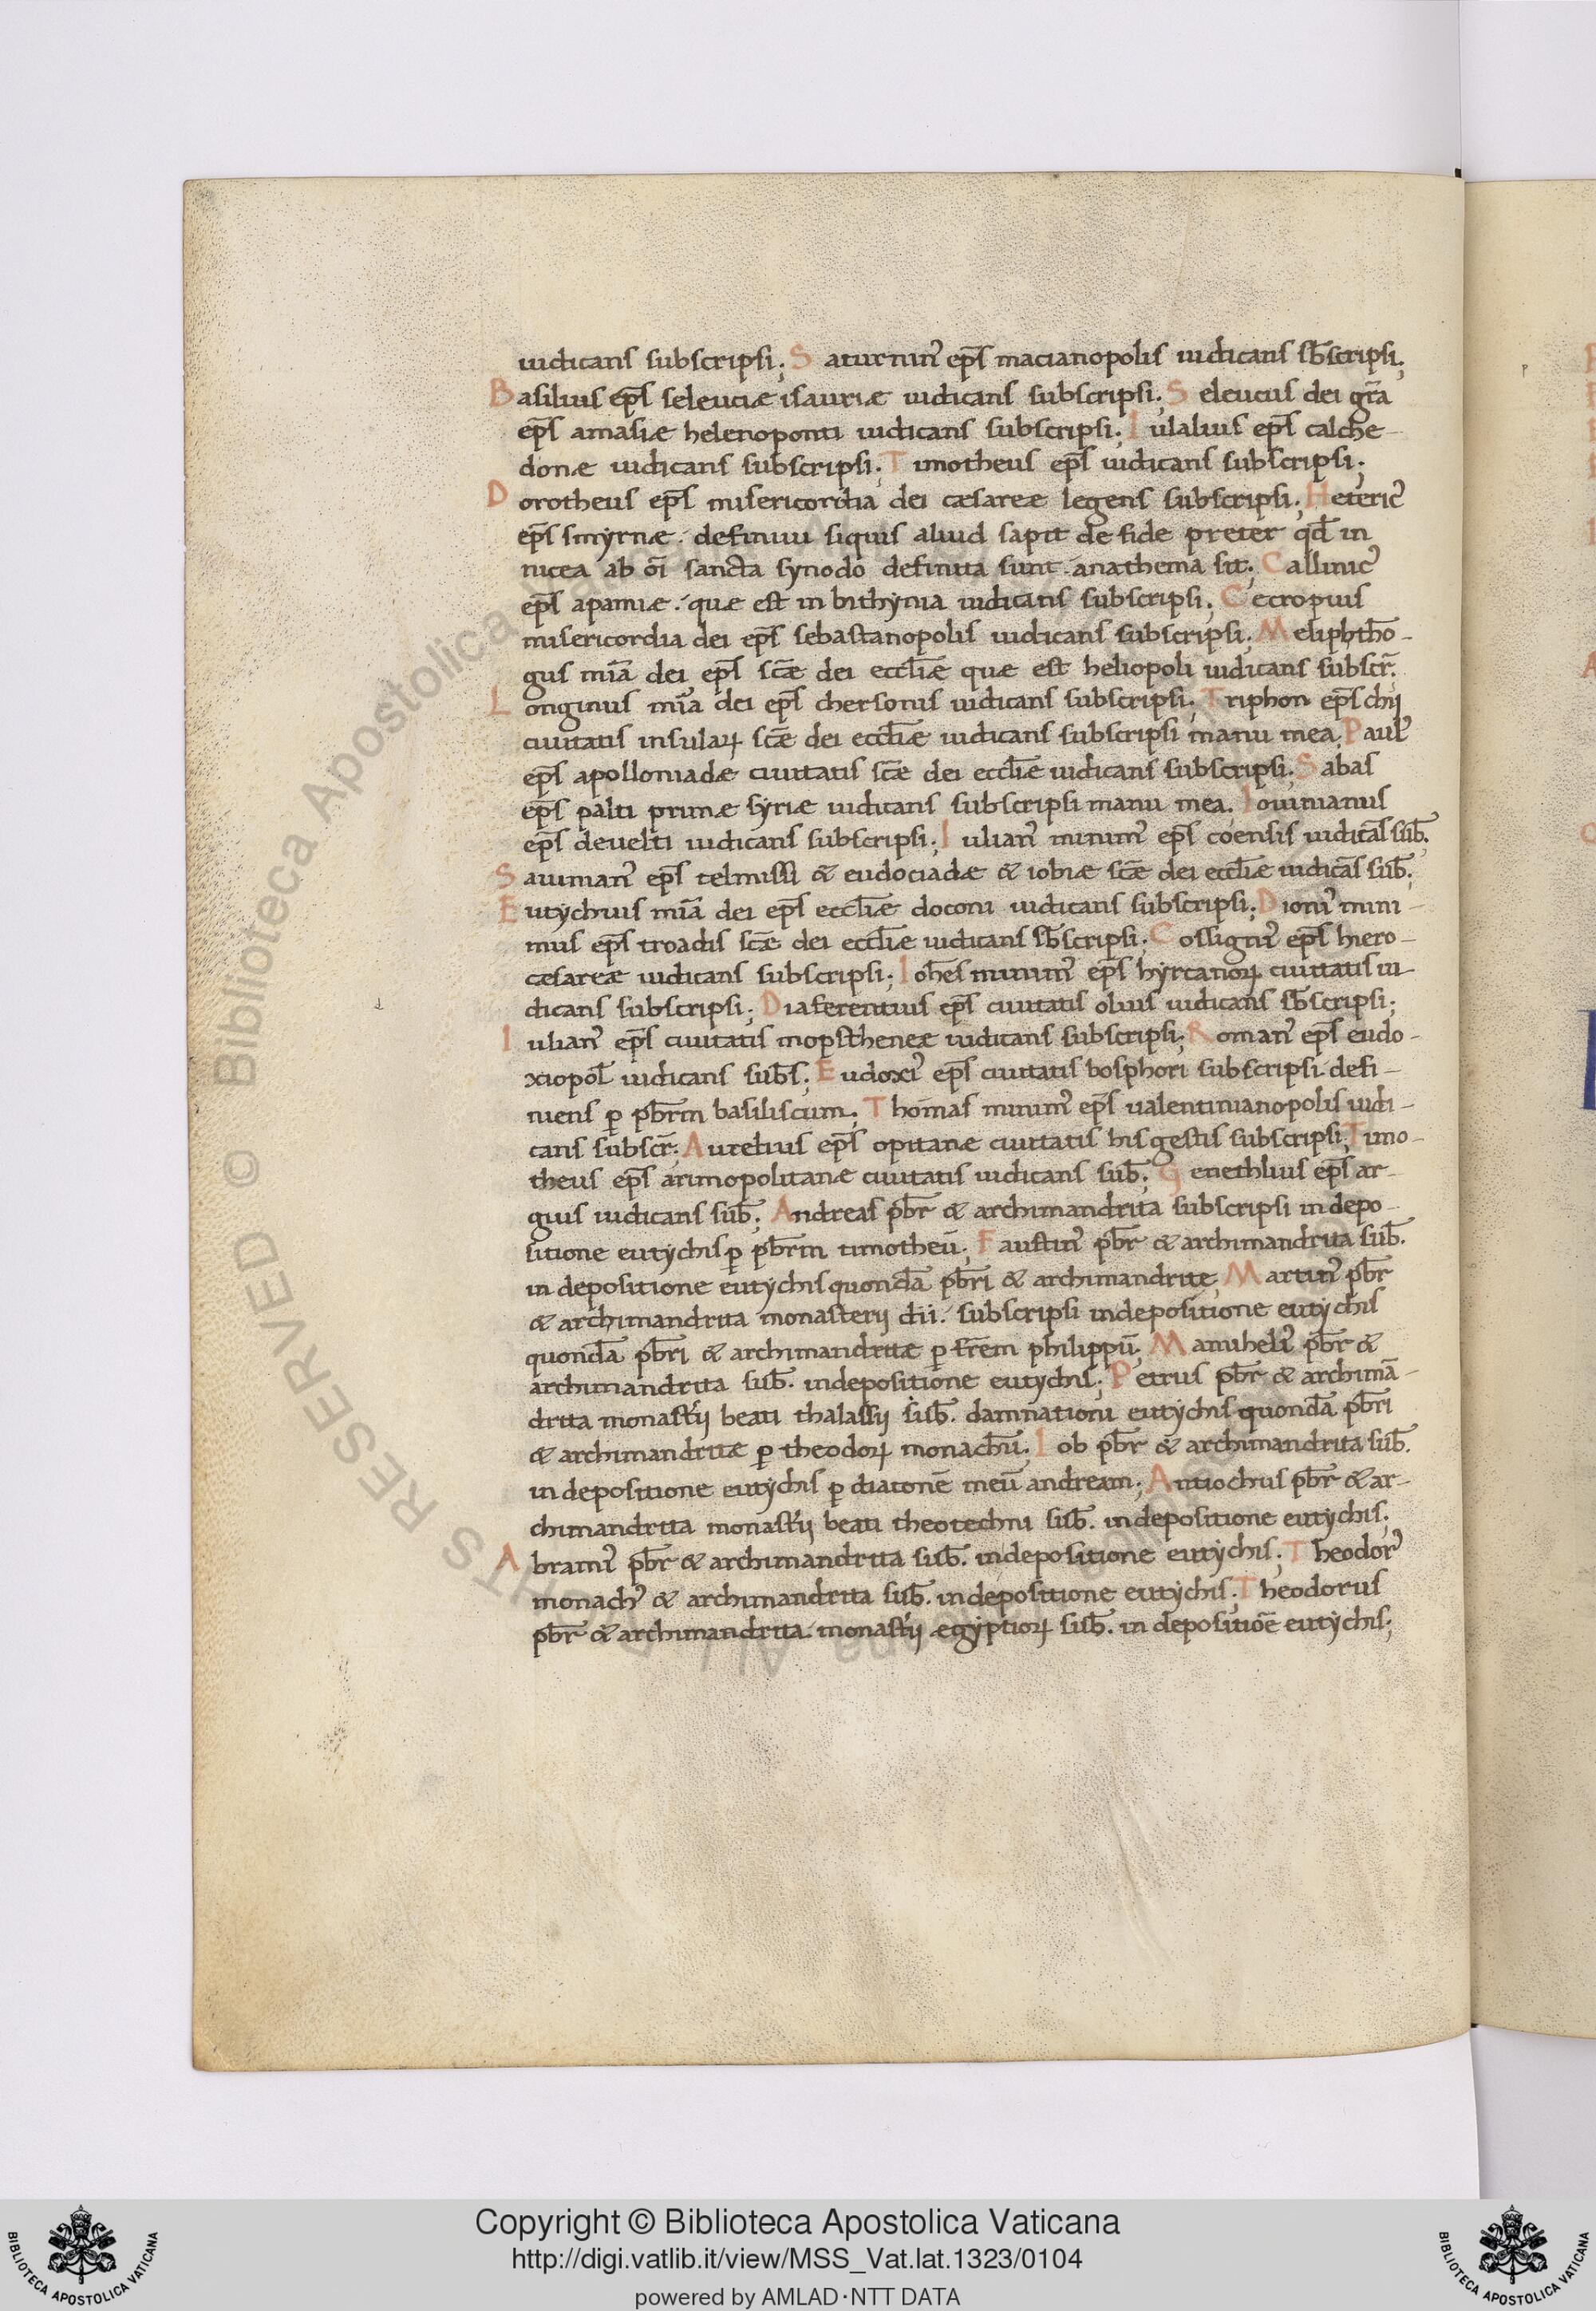 iudicans subscripsi; Saturnin᾽ ep̅s macianopolis iudicans sb̅scripsi;
Basilius ep̅s seleuciæ isauriæ iudicans subscripsi; Seleucus dei gr̅a
ep̅s amasiæ helenoponti iudicans subscripsi; Iulalius ep̅s calche-
donæ iudicans subscripsi; Timotheus ep̅s iudicans subscripsi;
Dorotheus ep̅s misericordia dei cæsareæ legens subscripsi; Heteric᾽
ep̅s smyrnæ. definiui siquis aliud sapit de fide preter qd̅ in
nicea ab o̅i sancta synodo definita sunt. anathema sit; Callinic᾽
ep̅s apamiæ. quæ est in bithynia iudicans subscripsi; Cecropius
misericordia dei ep̅s sebastanopolis iudicans subscripsi; Meliphtho-
gus mi̅a dei ep̅s sc̅æ dei eccl̅iæ quæ est heliopoli iudicans subscr̅.
Longinus mi̅a dei ep̅s chersonis iudicans subscripsi; Triphon ep̅s chij
ciuitatis insulaꝝ sc̅æ dei eccl̅iæ iudicans subscripsi manu mea. Paul᾽
ep̅s apolloniadæ ciuitatis sc̅æ dei eccl̅iæ iudicans subscripsi; Sabas
ep̅s palti primæ syriæ iudicans subscripsi manu mea. Iouinianus
ep̅s deuelti iudicans subscripsi; Iulian᾽ minim᾽ ep̅s coensis iudica̅s sub̅.
Sauiman᾽ ep̅s telmissi & eudociadæ & iobiæ sc̅æ dei eccl̅iæ iudica̅s sub̅.
Eutychius mi̅a dei ep̅s eccl̅iæ doconi iudicans subscripsi; Dioni᾽ mini-
mus ep̅s troadis sc̅æ dei eccl̅iæ iudicans sb̅scripsi; Cossigni᾽ ep̅s hiero-
cæsareæ iudicans subscripsi; Ioh̅es minim᾽ ep̅s hyrcanoꝝ ciuitatis iu-
dicans subscripsi; Diaferentius ep̅s ciuitatis oliuis iudicans sb̅scripsi;
Iulian᾽ ep̅s ciuitatis mopstheneæ iudicans subscripsi; Roman᾽ ep̅s eudo-
xiopol̅ iudicans sub̅s; Eudoxi᾽ ep̅s ciuitatis bosphori subscripsi defi-
niens ꝑ pb̅rm basiliscum; Thomas minim᾽ ep̅s ualentinianopolis iudi-
cans subscr̅. Aurelius ep̅s opitanæ ciuitatis his gestis subscripsi; Timo-
theus ep̅s arimopolitanæ ciuitatis iudicans sub̅; Genethlius ep̅s ar-
giuis iudicans sub̅; Andreas pb̅r & archimandrita subscripsi in depo-
sitione eutychis ꝑ pb̅rm timotheu̅; Faustin᾽ pb̅r & archimandrita sub̅.
in depositione eutychis quonda̅ pb̅ri & archimandrite; Martin᾽ pb̅r
& archimandrita monasterij dii. subscripsi in depositione eutychis
quonda̅ pb̅ri & archimandritæ ꝑ fr̅em philippu̅; Manuheli᾽ pb̅r &
archimandrita sub̅. in depositione eutychis; Petrus pb̅r & archima̅-
drita monastij beati thalassij sub̅. damnationi eutychis quonda̅ pb̅ri
& archimandritæ ꝑ theodoꝝ monachu̅; Iob pb̅r & archimandrita sub̅.
in depositione eutychis ꝑ diacone̅ meu̅ andream; Antiochus pb̅r & ar-
chimandrita monastij beati theotechni sub̅. in depositione eutychis;
Abrami᾽ pb̅r & archimandrita sub̅. in depositione eutychis; Theodor᾽
monach᾽ & archimandrita sub̅. in depositione eutychis; Theodorus
pb̅r & archimandrita monastij ægyptioꝝ sub̅. in depositio̅e eutychis;
© Biblioteca Apostolica Vaticana
ALL RIGHTS RESERVED
Copyright © Biblioteca Apostolica Vaticana
http://digi.vatlib.it/view/MSS_Vat.lat.1323/0104
powered by AMLAD·NTT DATA
BIBLIOTECA APOSTOLICA VATICANA
BIBLIOTECA APOSTOLICA VATICANA